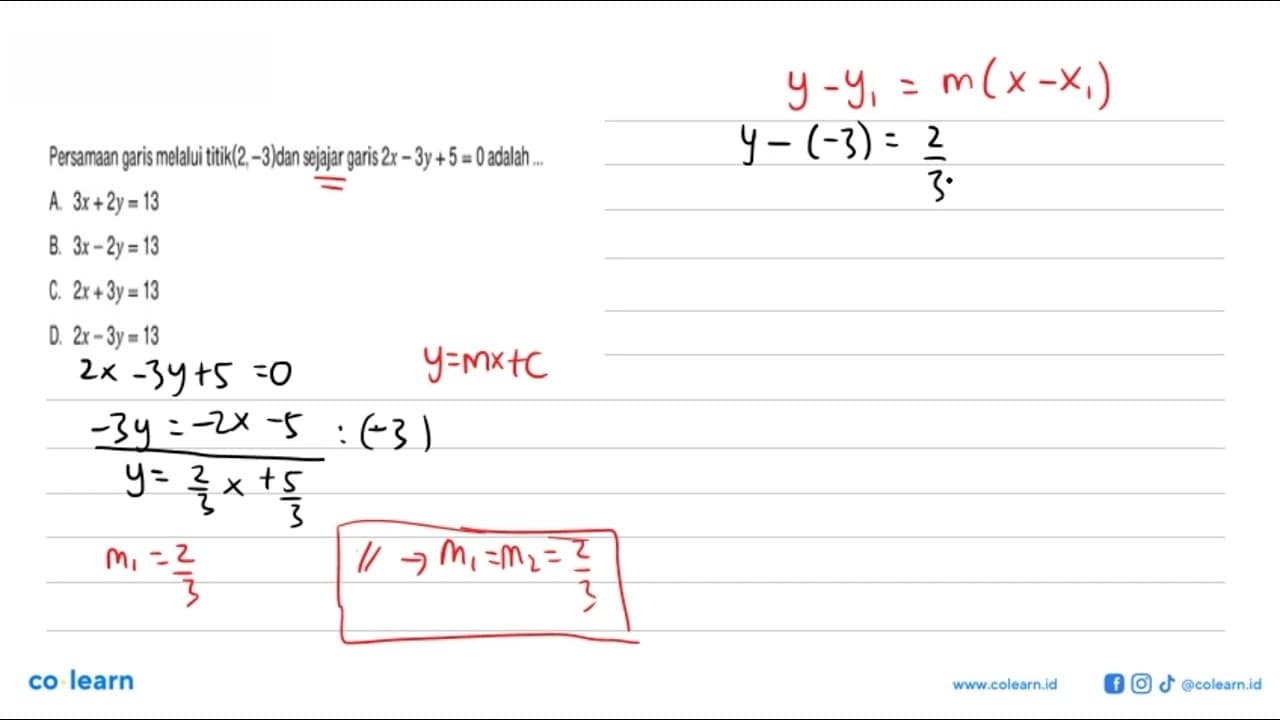 Persamaan garis melalui titik(2,-3)dan sejajar garis 2x - 3y + 5 = 0 adalah ...
A. 3x + 2y = 13
B. 3x - 2y = 13
C. 2x + 3y = 13
D. 2x - 3y = 13
2x -3y+5 =0
y=mx+c
-3y = -2x -5 : (-3)
y= 2/3 x + 5/3
m₁ = 2/3
// → m₁=m₂= 2/3
y - y₁ = m(x - x₁)
y - (-3) = 2/3
co·learn
www.colearn.id
@colearn.id